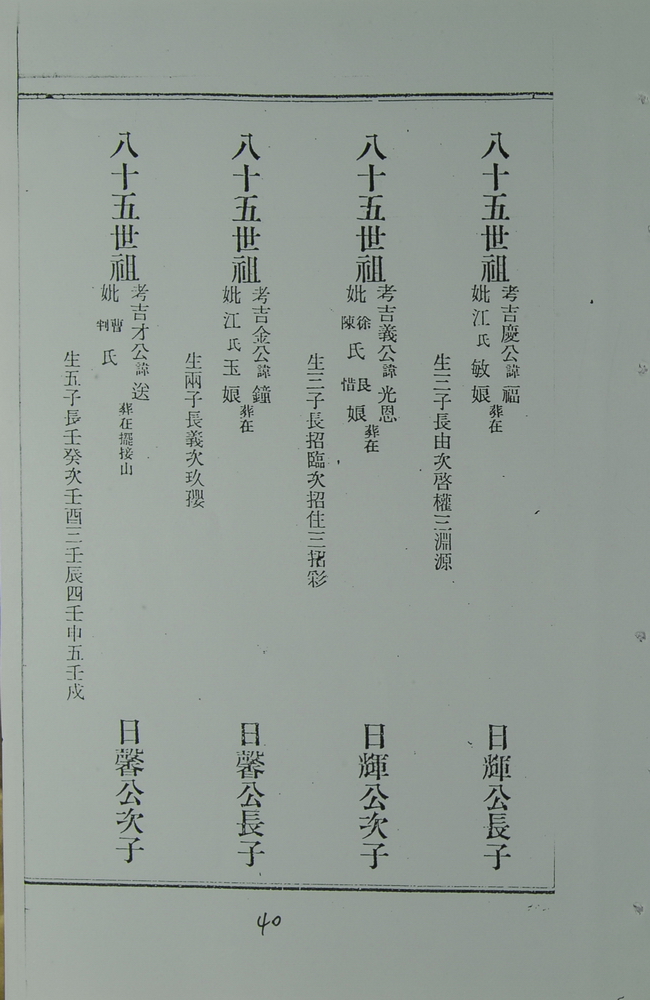 八十五世祖
考吉慶公諱福
妣江氏敏娘葬在
生三子長由次啓權三淵源
日輝公長子
八十五世祖
考吉義公諱光恩
妣徐陳氏良惜娘葬在
生三子長招臨次招住三招彩
日輝公次子
八十五世祖
考吉金公諱鐘
妣江氏玉娘葬在
生兩子長義次玖璎
日馨公長子
八十五世祖
考吉才公諱送
妣曹判氏葬在擺接山
生五子長壬癸次壬酉三壬辰四壬申五壬戌
日馨公次子
40